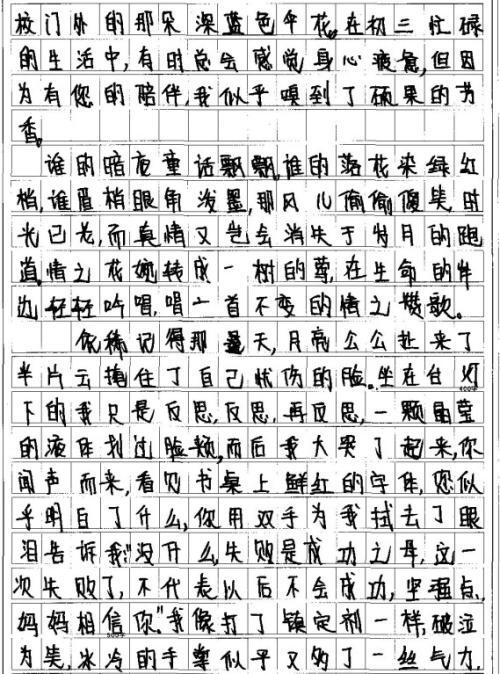 校门外的那朵深蓝色伞花。在初三忙碌
的生活中,有时总会感觉身心疲惫,但因
为有您的陪伴,我似乎嗅到了硕果的芳
香。
谁的暗夜童话飘飘,谁的落花染绿红
梢,谁眉梢眼角泼墨,那风儿偷偷傻笑,时
光已老,而真情又岂会消失于岁月的跑
道。情之花婉转成一树的草,在生命的伴
边轻轻吟唱,唱一首不变的情之赞歌。
依稀记得那是天,月亮公公赴来了
半片云掩住了自己忧伤的脸。坐在台灯
下的我只是反思,反思,再反思,一颗晶莹
的液体划过脸颊,而后我大哭了起来,你
闻声而来,看见书桌上鲜红的字体,您似
乎明白了什么,你用双手为我拭去了眼
泪告诉我:"没什么,失败是成功之母,这一
次失败了,不代表以后不会成功,坚强点,
妈妈相信你"我像打了镇定剂一样,破泣
为笑,冰冷的手掌似乎又够了一丝气力,